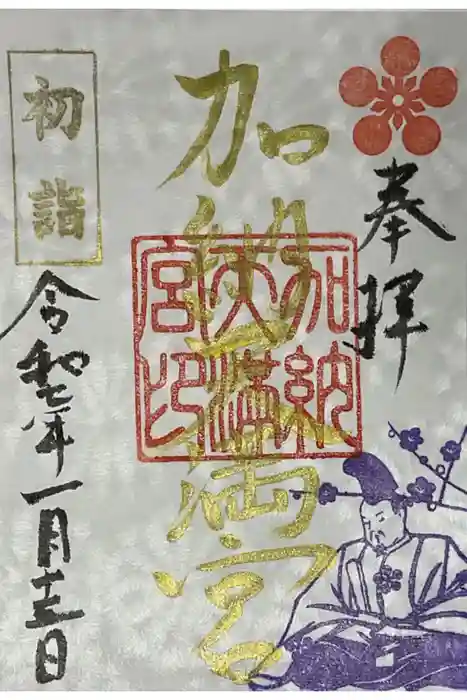 奉拝
加納天満宮
加納天満宮印
初詣
令和七年一月十三日